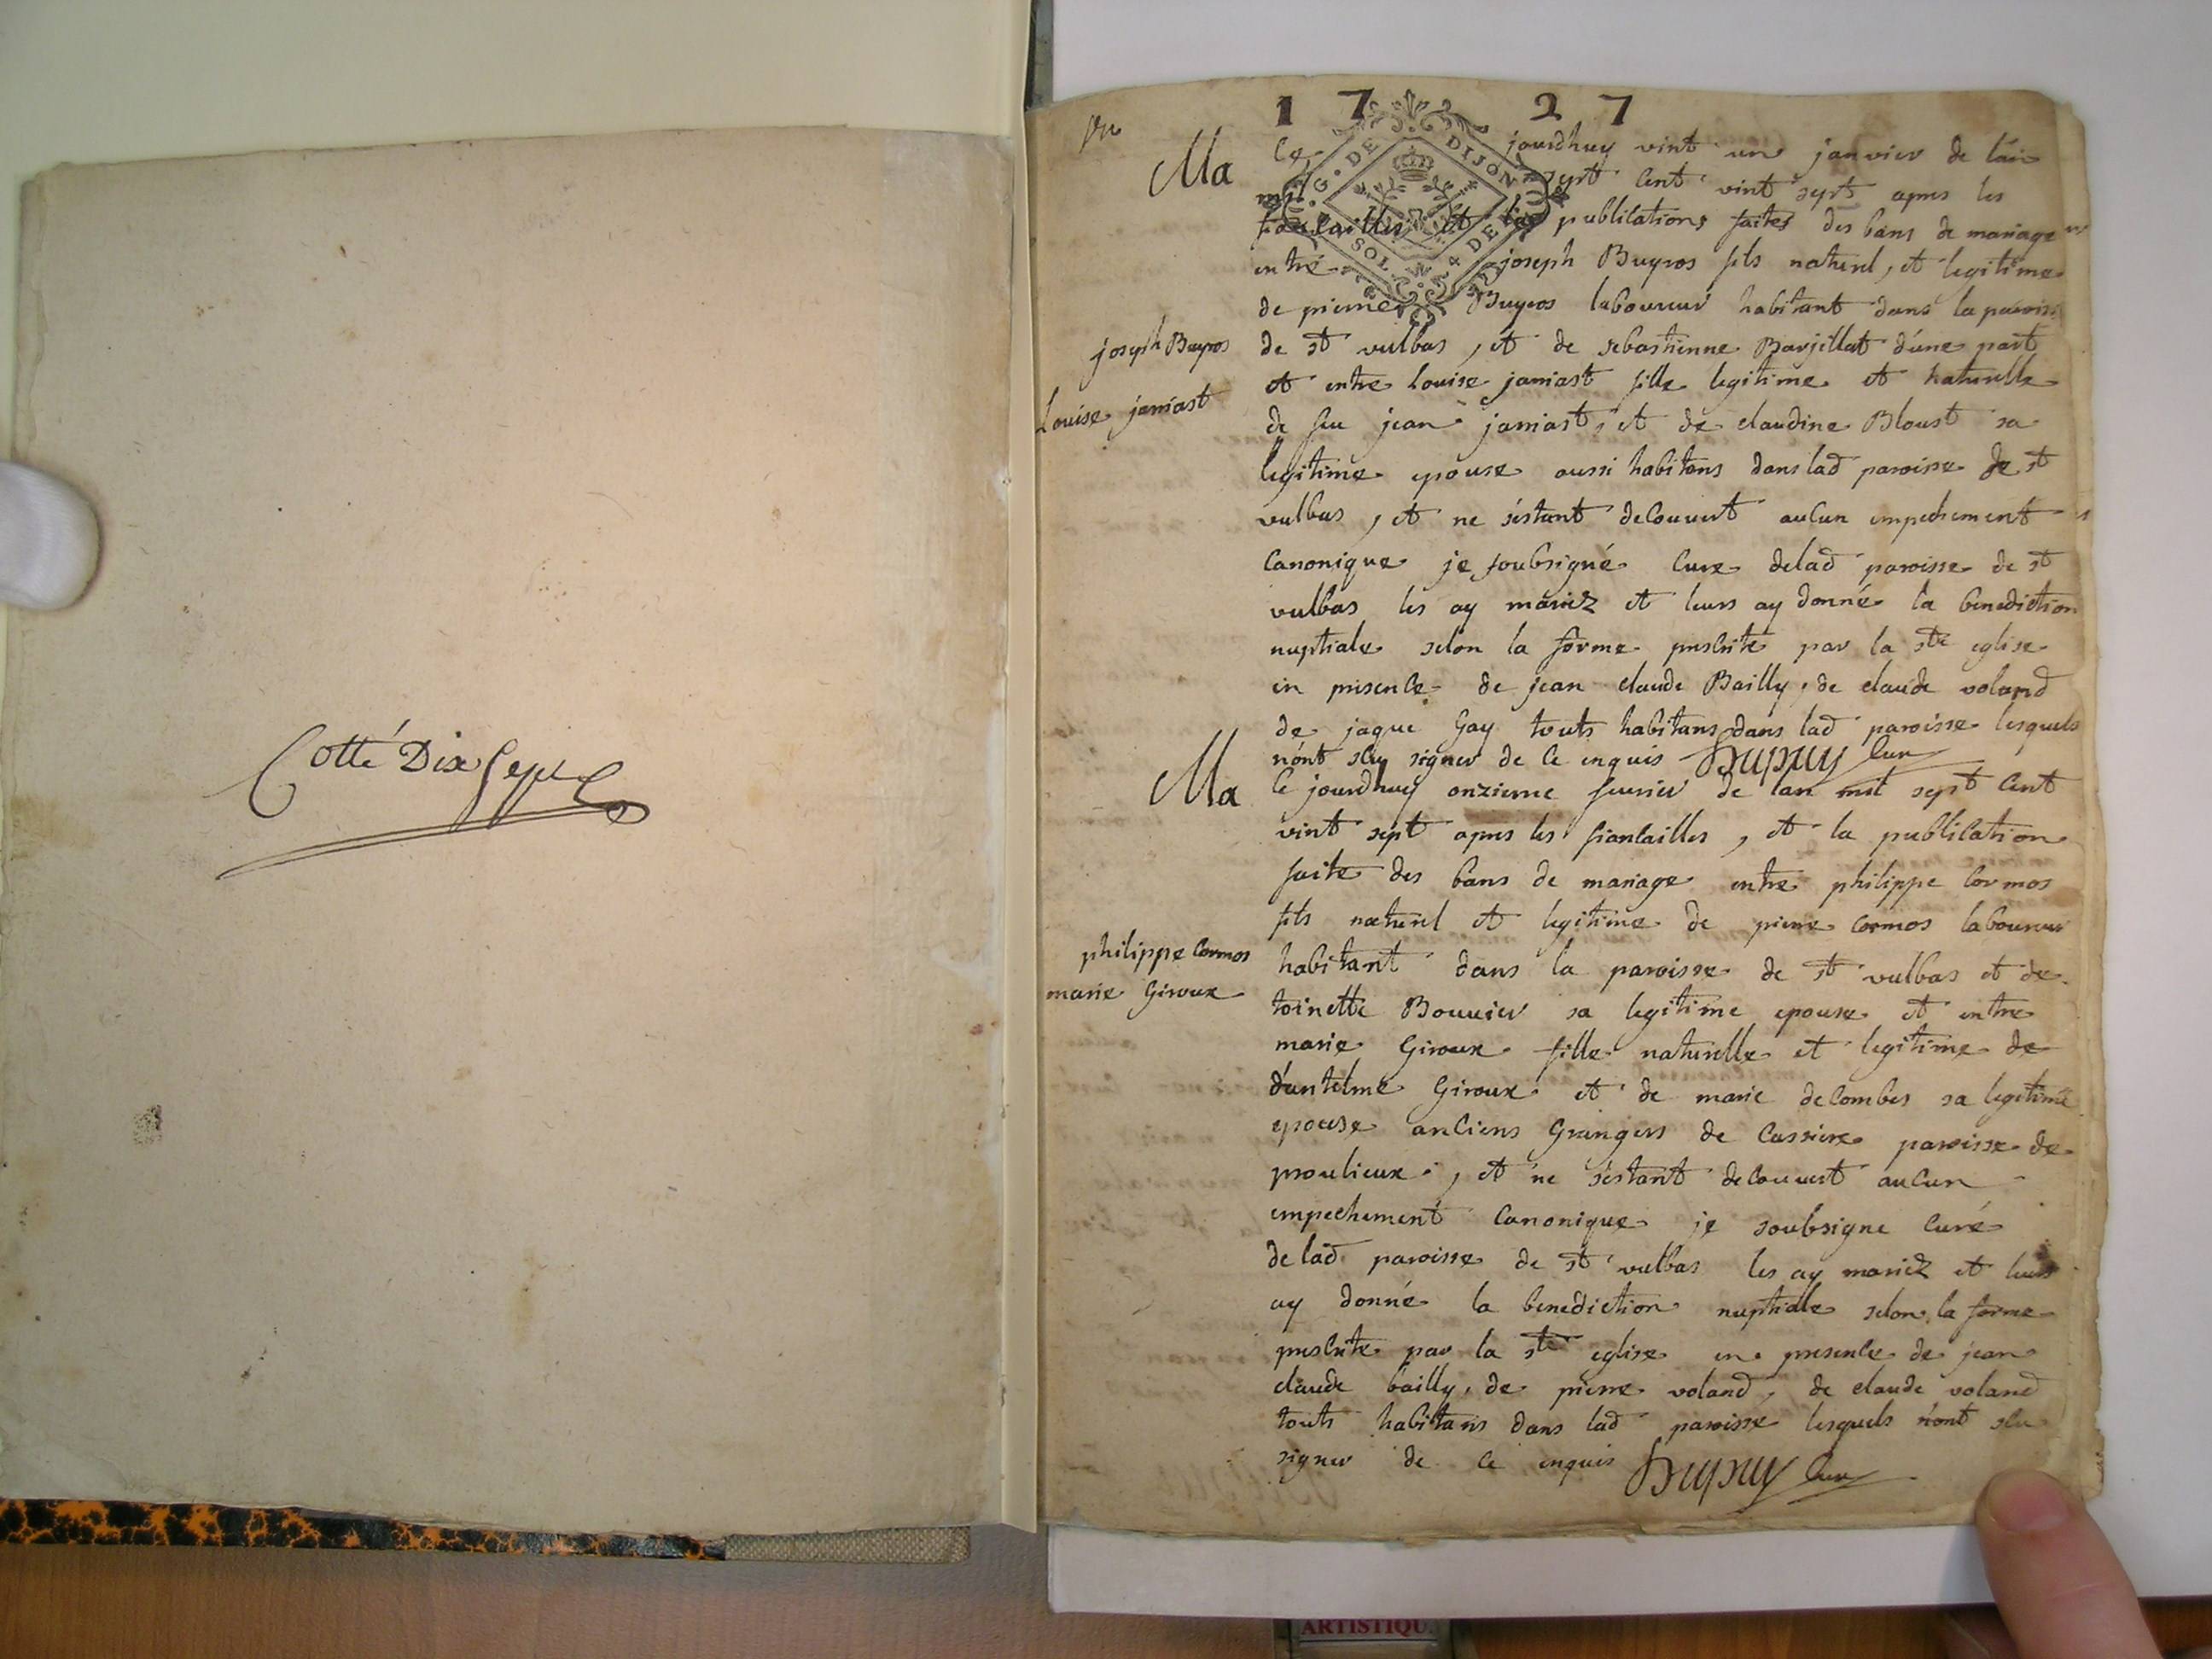 Cotté Dix Sept
1 7 2 7
Ma
Ce jourdhuy vint un janvier de l'an
mil sept cent vint sept apres les
fiancailles et les publications faites des bans de mariage
entre joseph Buyros fils naturel, et legitime
de pierre Buyros laboureur habitant dans la paroisse
joseph Buyros
de st vulbas, et de sebastienne Barjillat d'une part
Louise janiast
et entre Louise janiast fille legitime et naturelle
de feu jean janiast, et de claudine Bloust sa
legitime epouse aussi habitans dans lad paroisse de st
vulbas, et ne s'estant decouvert aucun empechement
canonique je soubsigné cure delad paroisse de st
vulbas les ay mariez et leurs ay donné la benediction
nuptiale selon la forme prescrite par la ste eglise
en presence de jean claude Bailly, de claude voland
de jaque Gay touts habitans dans lad paroisse lesquels
n'ont sçu signer de ce enquis Dupuy Cur
Ma
Ce jourdhuy onzieme feuvrier de lan mil sept cent
vint sept apres les fiancailles, et la publication
faite des bans de mariage entre philippe Cormos
fils naturel et legitime de pierre Cormos laboureur
philippe Cormos
habitant dans la paroisse de st vulbas et de
marie Giroux
toinette Bouuier sa legitime epouse et entre
marie Giroux fille naturelle et legitime de
d'antelme Giroux et de marie decombes sa legitime
epouse anciens Grangers de Cassiere paroisse de
proulieux, et ne s'estant decouuert aucun
empechement canonique je soubsigne curé
de lad paroisse de st vulbas les ay mariez et leurs
ay donné la benediction nuptiale selon la forme
prescrite par la ste eglise en presence de jean
claude bailly, de pierre voland, de claude voland
touts habitans dans lad paroisse lesquels n'ont sçu
signer de ce enquis Dupuy Cur
G. DE DIJON
SOL 4 DE
ARTISTIQU